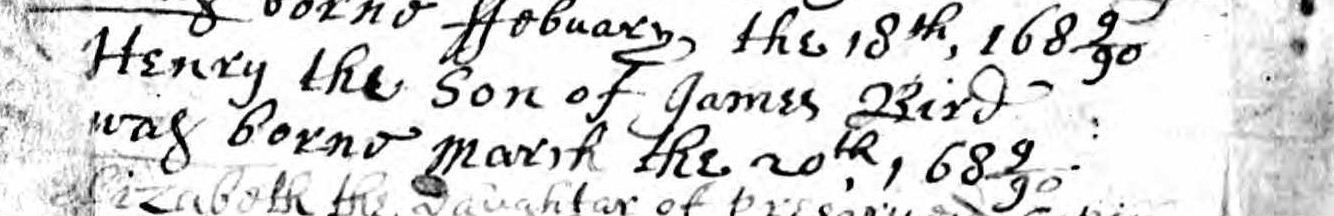 was borne ffebuary the 18th, 168 9/90
Henry the Son of James Bird
was borne marsh the 20th, 168 9/90
Elizabeth the Daughtar of